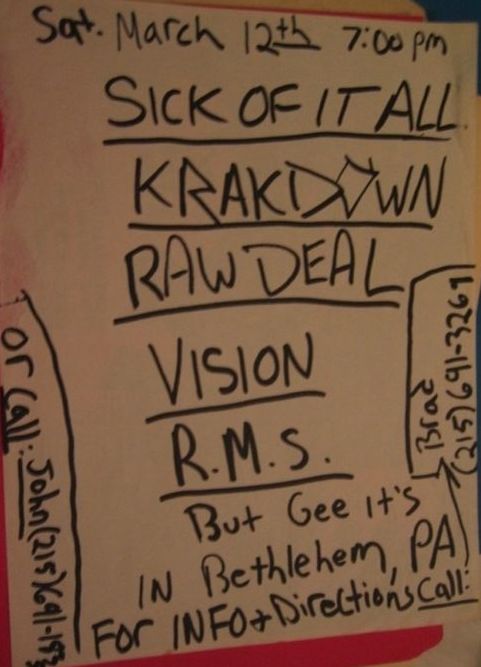 Sat. March 12th 7:00 pm
SICK OF IT ALL
KRAKDOWN
RAW DEAL
VISION
R.M.S.
But Gee it's
IN Bethlehem, PA
FOR INFO + Directions Call:
Brad
(215) 691-3269
or Call: John (215) 691-193